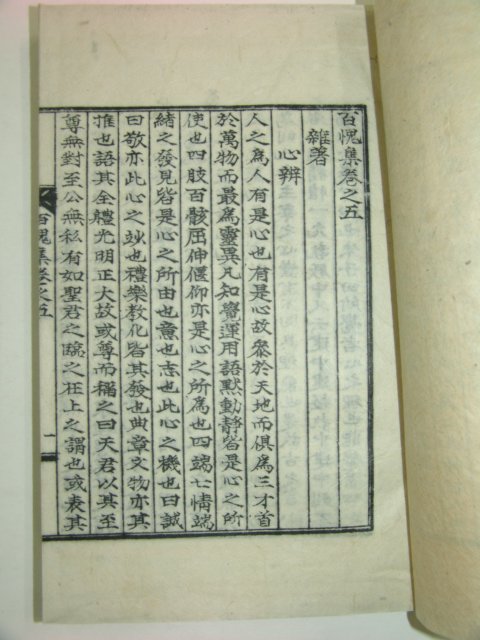 百愧集卷之五
雜著
心辨
人之爲人有是心也有是心故參於天地而俱爲三才首
於萬物而最爲靈異凡知覺運用語默動靜皆是心之所
使也四肢百骸屈伸偃仰亦是心之所爲也四端七情端
緖之發見皆是心之所由也意也志也此心之機也曰誠
曰敬亦此心之妙也禮樂敎化皆其發也典章文物亦其
推也語其全體光明正大故或尊而稱之曰天君以其至
尊無對至公無私有如聖君之臨之在上之謂也或表其
百愧集卷之五
一